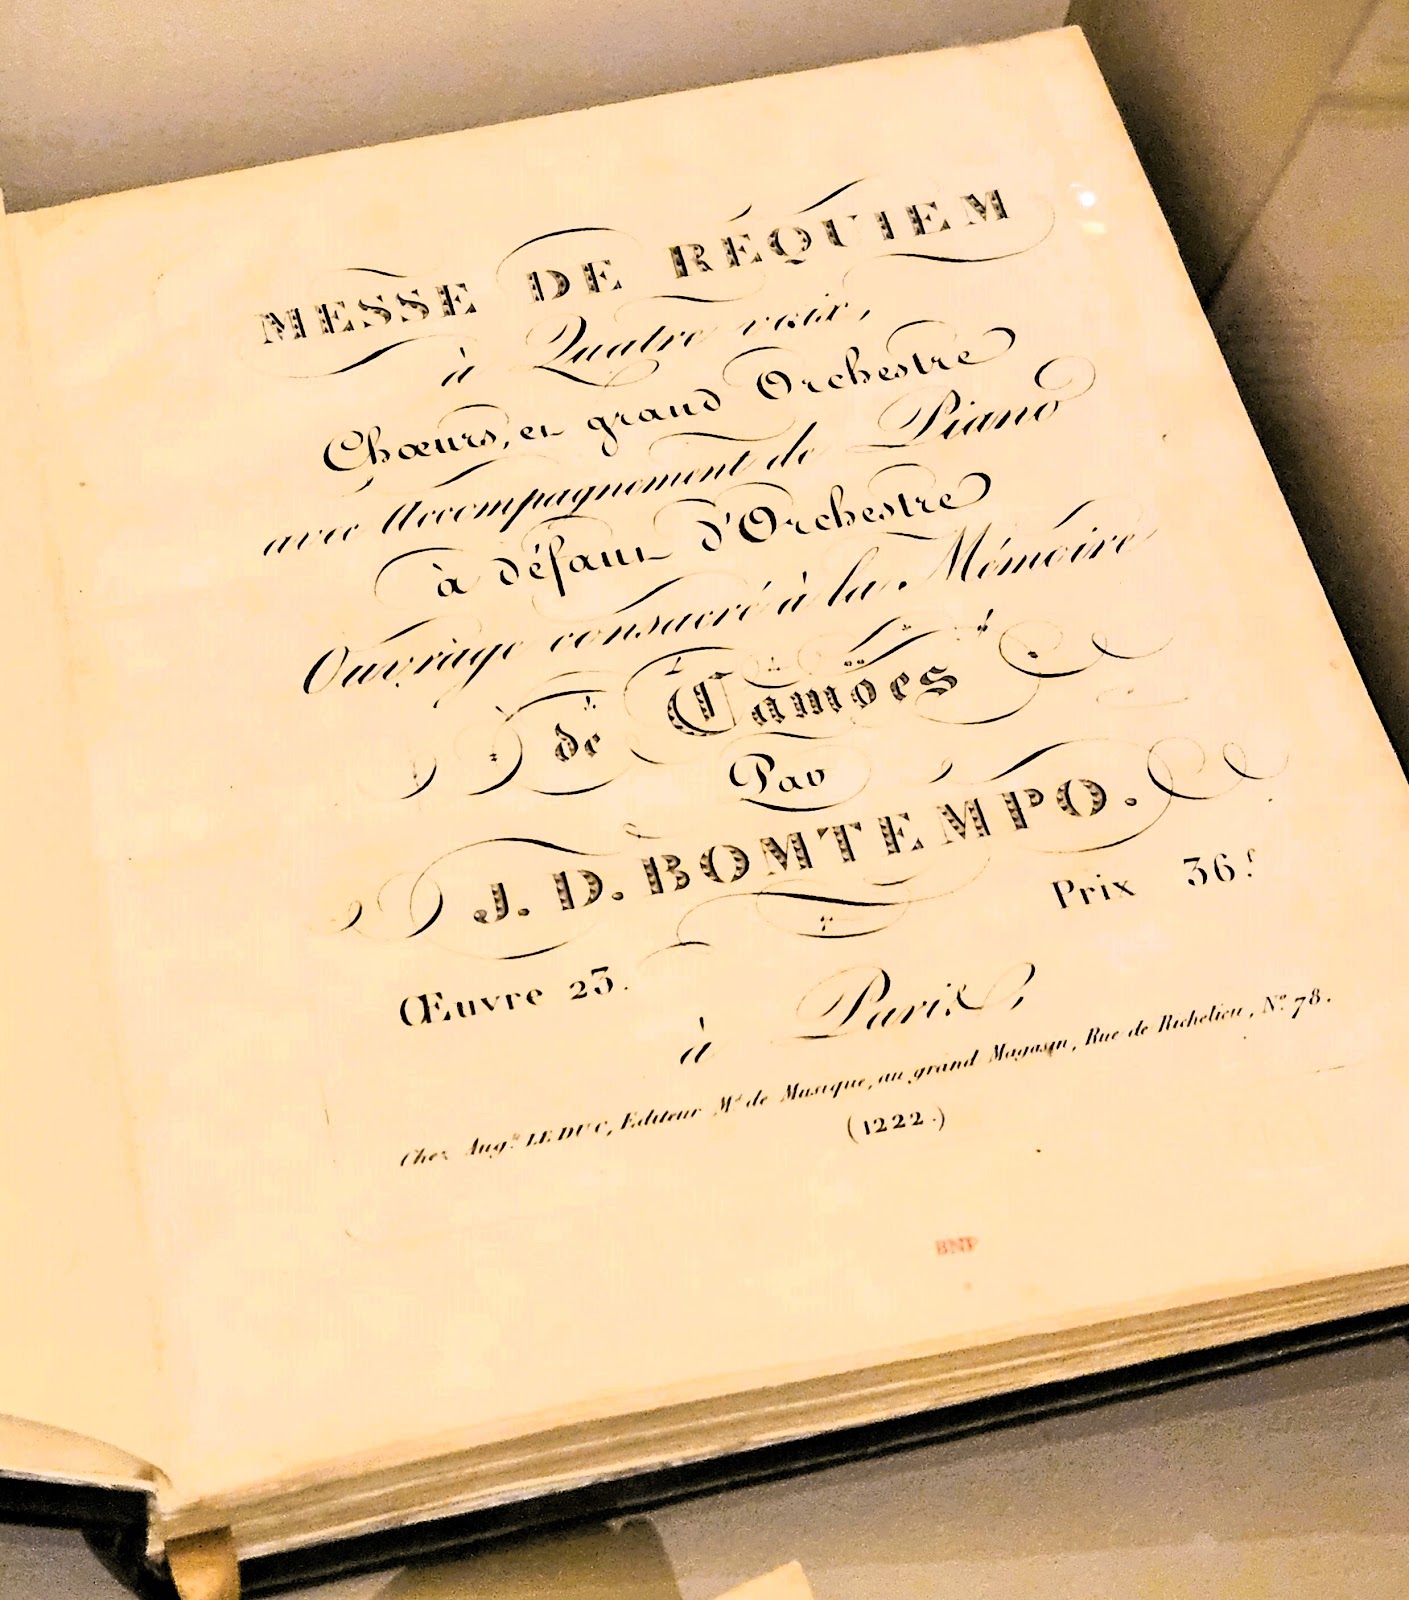 MESSE DE RÉQUIEM
à Quatre voix,
Chœurs, et grand Orchestre
avec Accompagnement de Piano
à défaut d'Orchestre
Ouvrage consacré à la Mémoire
de Camöes
Par
J. D. BOMTEMPO.
Œuvre 23.
Prix 36.f
à Paris,
Chez Aug.te LE DUC, Editeur M.d de Musique, au grand Magasin, Rue de Richelieu, N.o 78.
(1222.)
BNP